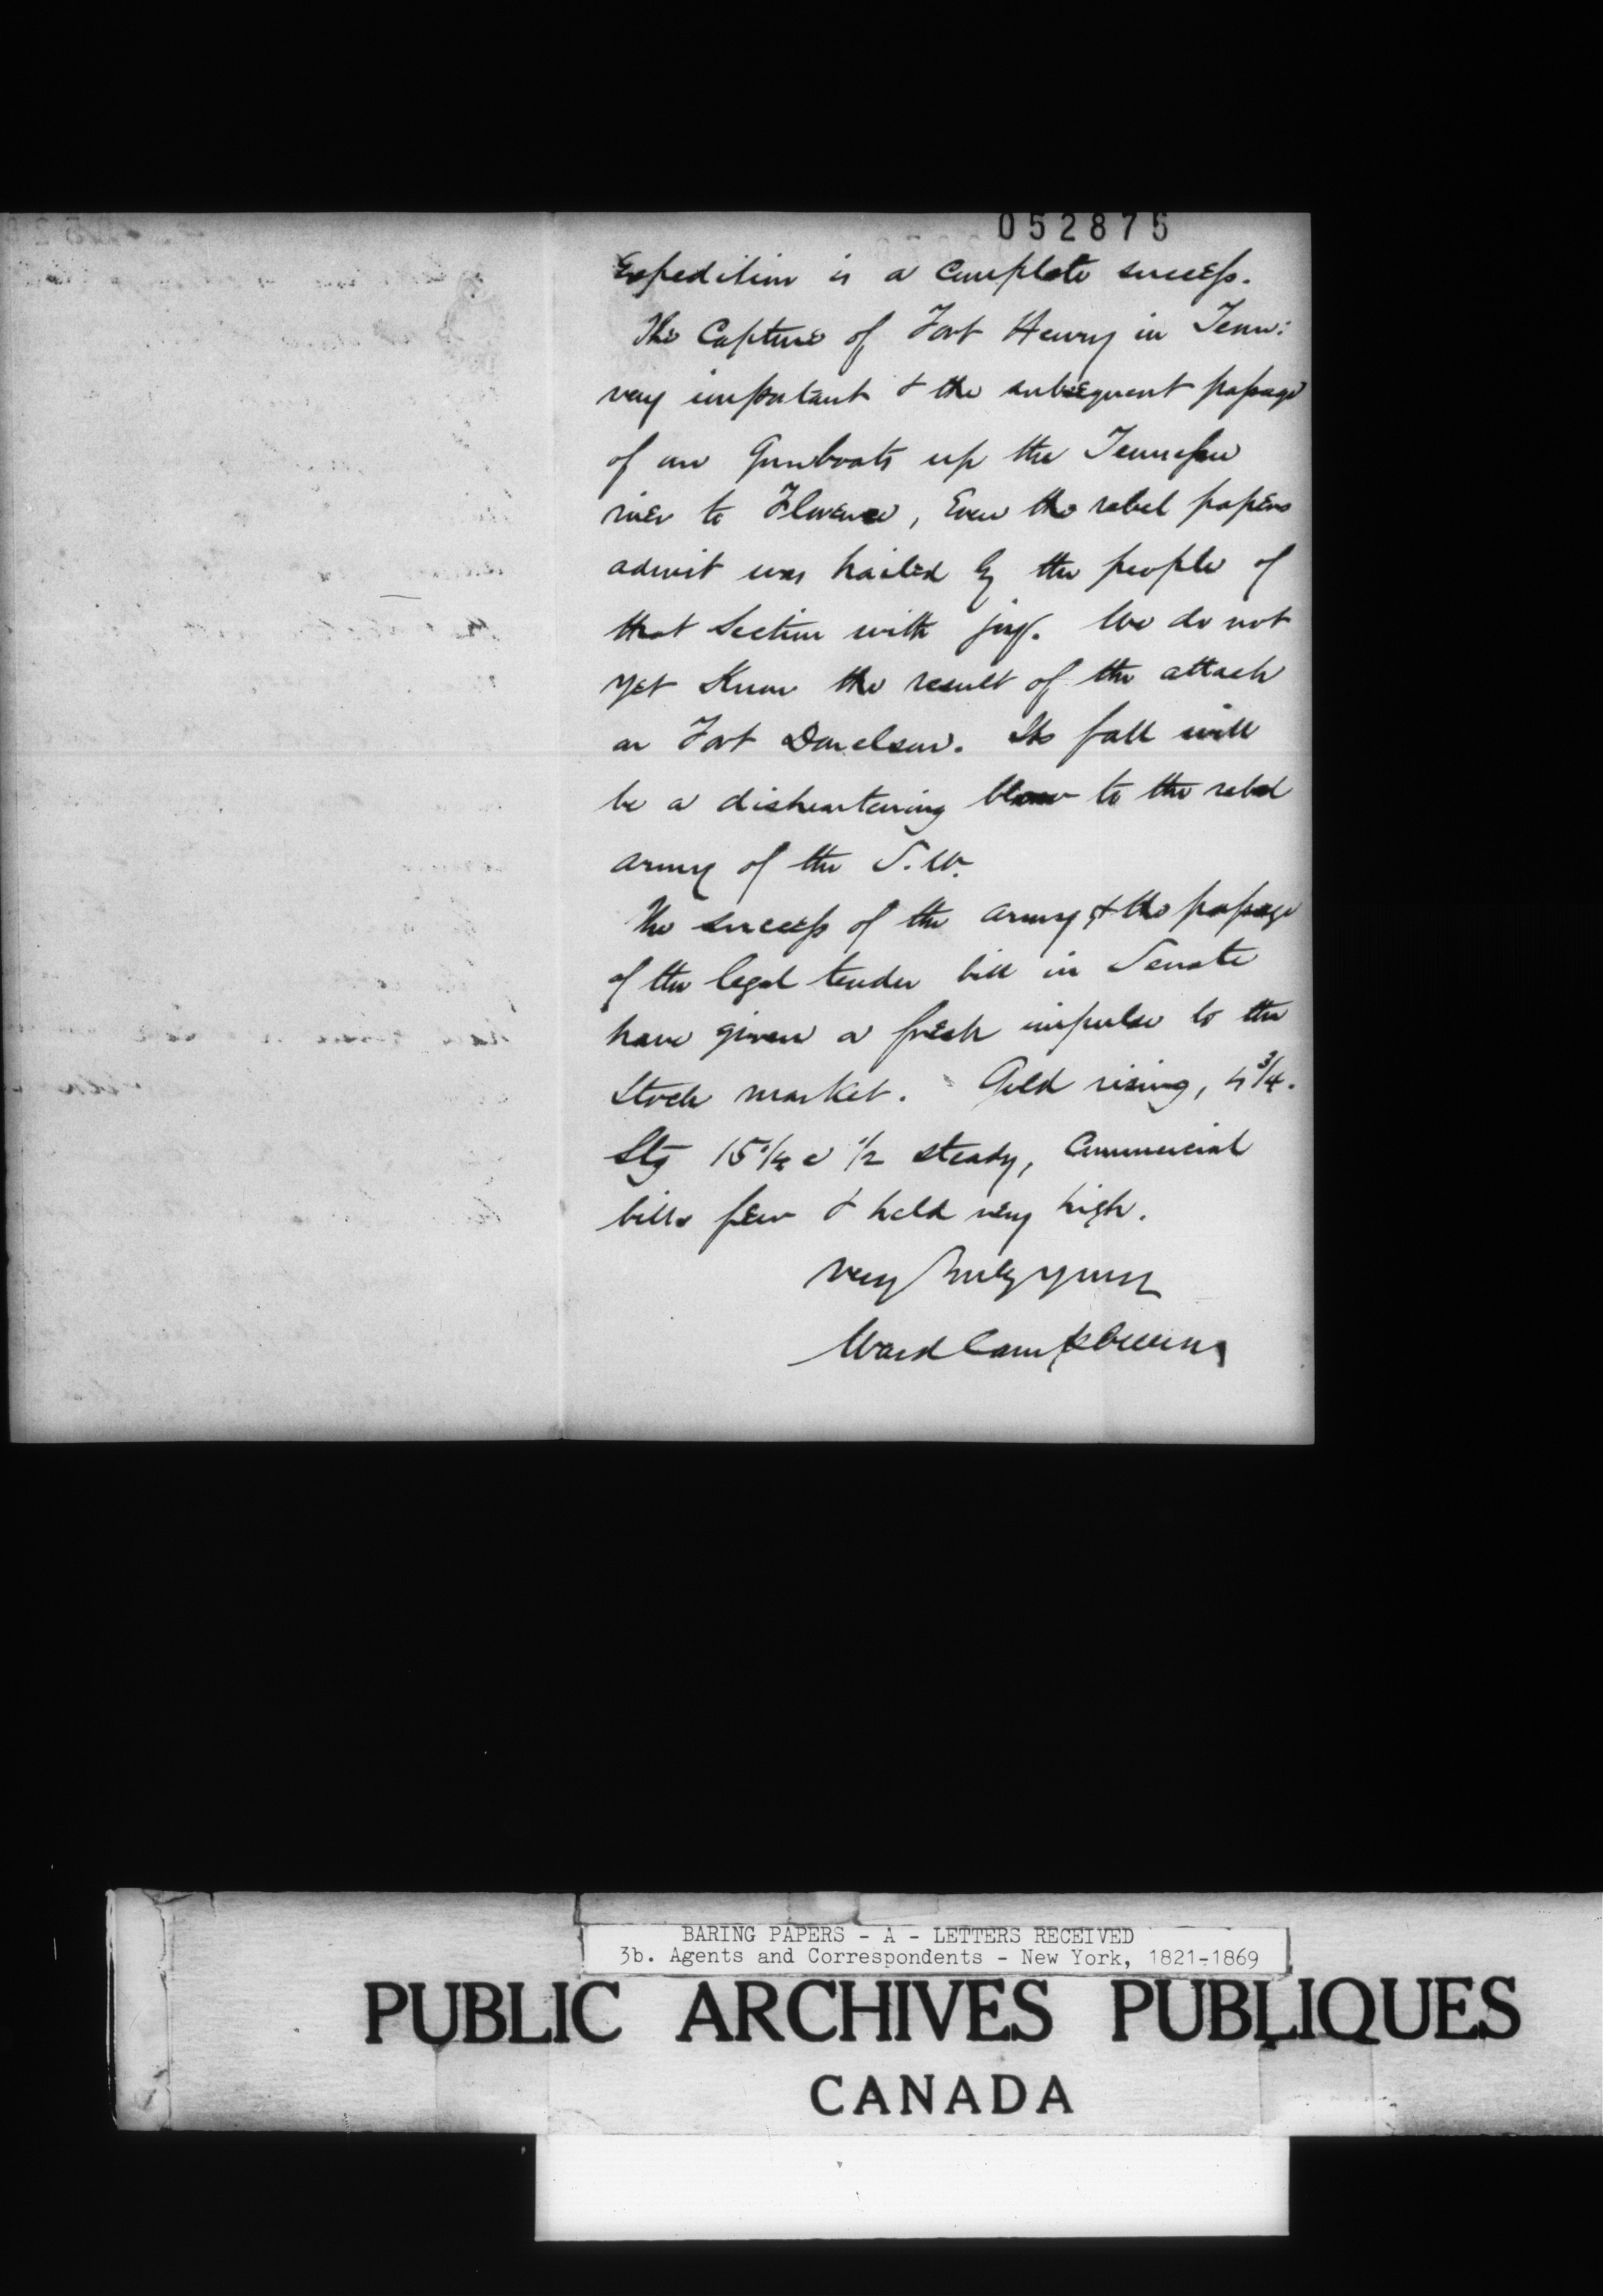 052875
Expedition is a complete success.
The Capture of Fort Henry in Tenn:
very important & the subsequent passage
of our Gunboats up the Tennessee
river to Florence, Even the rebel papers
admit was hailed by the people of
that Section with joy. We do not
yet Know the result of the attack
on Fort Donelson. Its fall will
be a disheartening blow to the rebel
army of the S.W.
The success of the army & the passage
of the legal tender bill in Senate
have given a fresh impulse to the
Stock market. Gold rising, 4 3/4.
Stg 15 1/4 @ 1/2 steady, Commercial
bills few & held very high.
Very truly yours
Ward Campbell
BARING PAPERS - A - LETTERS RECEIVED
3b. Agents and Correspondents - New York, 1821-1869
PUBLIC ARCHIVES PUBLIQUES
CANADA